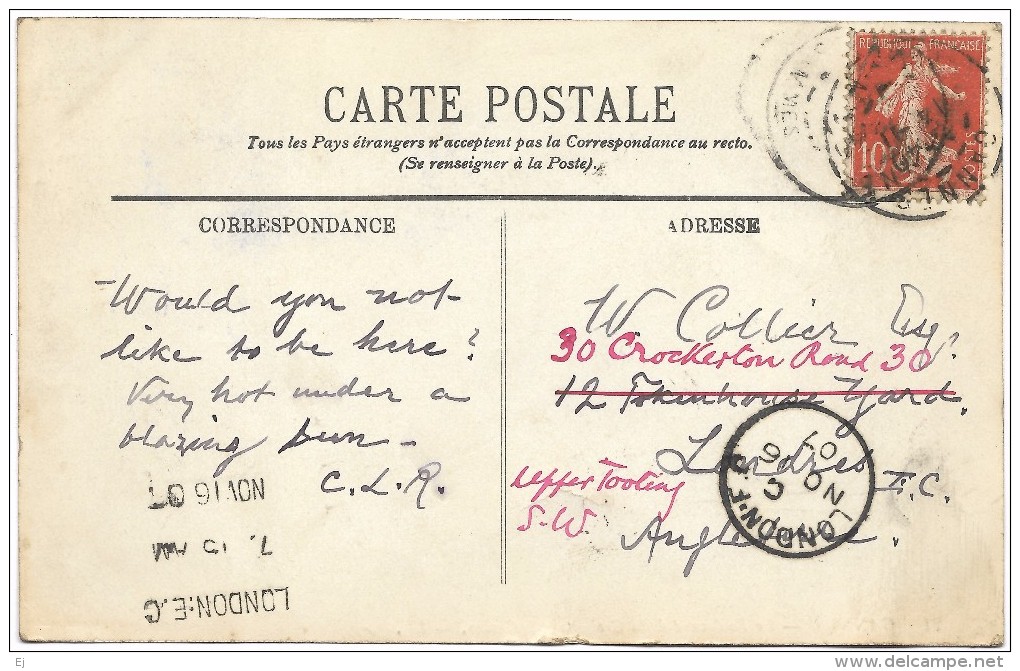 CARTE POSTALE
Tous les Pays étrangers n'acceptent pas la Correspondance au recto.
(Se renseigner à la Poste).
REPUBLIQUE FRANÇAISE
10
POSTES
CORRESPONDANCE
Would you not
like to be here?
Very hot under a
blazing sun –
C. L. R.
NOV 16 07
7. 15 AM
LONDON.E.C
ADRESSE
W. Collier Esq.
30 Crockerton Road 30
12 Tokenhouse Yard.
Londres E.C.
Upper Tooting
S.W.
Angleterre.
LONDON.F.S
C
NO 16
07
CANNES
Ej
www.delcampe.net